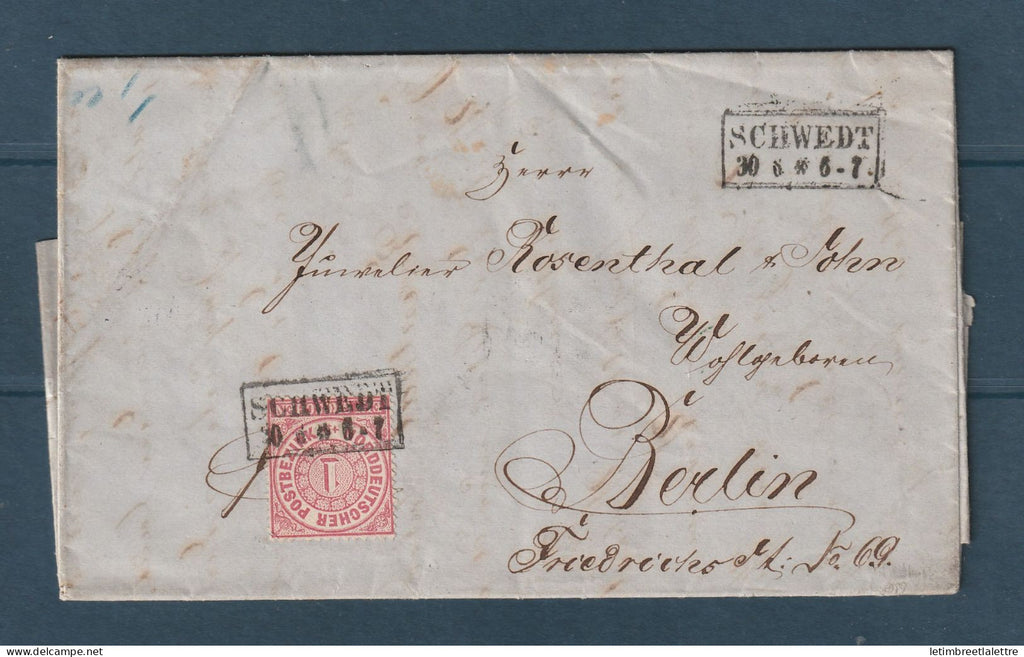 SCHWEDT
30 6 * 6-7.
Herrn
Juwelier Rosenthal & Sohn
Wohlgeboren
Berlin
Friedrichs St: No. 69.
SCHWEDT
30 6 * 6-7
NORDDEUTSCHER POSTBEZIRK
1
www.delcampe.net
letimbreetlalettre